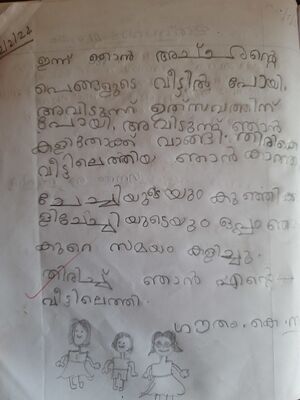 2/2/24
ഇന്ന് ഞാൻ അച്ചന്റെ
പെങ്ങളുടെ വീട്ടിൽ പോയി.
അവിടുന്ന് ഉത്സവത്തിന്
പോയി. അവിടുന്ന് ഞാൻ
കളിതോക്ക് വാങ്ങി. തിരികെ
വീട്ടിലെത്തിയ ഞാൻ
ചേച്ചിയുടെയും കുഞ്ഞി
ളിചേച്ചിയുടെയും ഒപ്പം
കുറെ സമയം കളിച്ചു.
തിരിച്ച് ഞാൻ എന്റെ
വീട്ടിലെത്തി.
ഗൗതം. കെ.